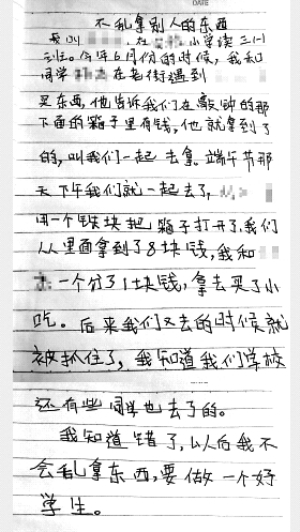 DATE
不乱拿别人的东西
我叫 在 小学读三(一)
班。今年6月份的时候，我和
同学 在老街遇到
买东西，他告诉我们在敲钟的那
下面的箱子里有钱，他就拿到了
的，叫我们一起去拿。端午节那
天下午我们就一起去了，
用一个铁块把箱子打开了，我们
从里面拿到了8块钱，我和
一个分了1块钱，拿去买了小
吃。后来我们又去的时候就
被抓住了，我知道我们学校
还有些同学也去了的。
我知道错了，以后我不
会乱拿东西，要做一个好
学生。